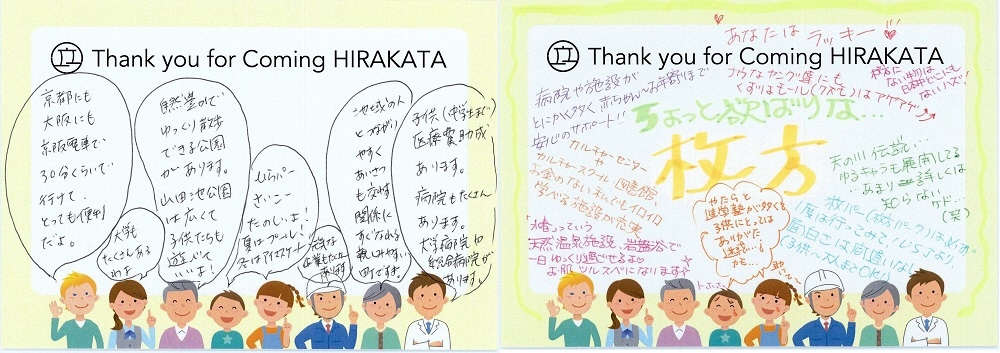 Thank you for Coming HIRAKATA
京都にも
大阪にも
京阪電車で
30分くらいで
行けて、
とっても便利
だよ。
大学も
たくさんある
わよ
自然豊かで
ゆっくり散歩
できる公園
があります。
山田池公園
は広くて
子供たちも
遊んで
いいよ!
ひらパー
さいこー
たのしいよ!
夏はプール!
冬はアイスケート
地域の人
とつながり
やすく
あいさつ
も交わす
関係に
すぐなれる
親しみやすい
町ですよ。
子供(中学生まで)
医療費助成
あります。
病院もたくさん
あります。
大学病院や
総合病院が
あります。
Thank you for Coming HIRAKATA
あなたは ラッキー
病院や施設が
とにかく多く赤ちゃん〜お年寄まで
安心のサポート!!
ナウなヤングにも
くずはモール(クズモ)はアゲアゲ
枚方に
ない物は
日本中どこにも
ないハズ!
ちょっと欲ばりな…
枚方
カルチャーセンター
や
カルチャースクール、図書館
お金のない私でもイロイロ
学べる施設が充実
天の川伝説…
ゆるキャラも展開してる
…あまり詳しくは
知らないケド…
(笑)
やたらと
進学塾が多くて
子供にとっては
ありがた
迷惑…
かも…
天然温泉施設、岩盤浴で
一日ゆっくり過ごせる
お肌ツルスベになります
枚パー(枚方パーク)は必ず
一度は行ってみて!
面白さは間違いなし
子供〜大人までOK!